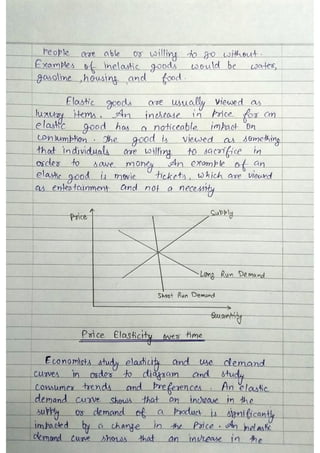 People are able or willing to go without.
Examples of inelastic goods would be water,
gasoline, housing, and food.
Elastic goods are usually viewed as
luxury items. An increase in Price for an
elastic good has a noticeable impact on
consumption. The good is viewed as something
that individuals are willing to sacrifice in
order to save money. An example of an
elastic good is movie tickets, which are viewed
as entertainment and not a necessity
Price
Supply
Long Run Demand
Short Run Demand
Quantity
Price Elasticity over time
Economists study elasticity and use demand
curves in order to diagram and study
consumer trends and Preferences. An elastic
demand curve shows that an increase in the
supply or demand of a Product is significantly
impacted by a change in the Price. An inelastic
demand curve shows that an increase in the